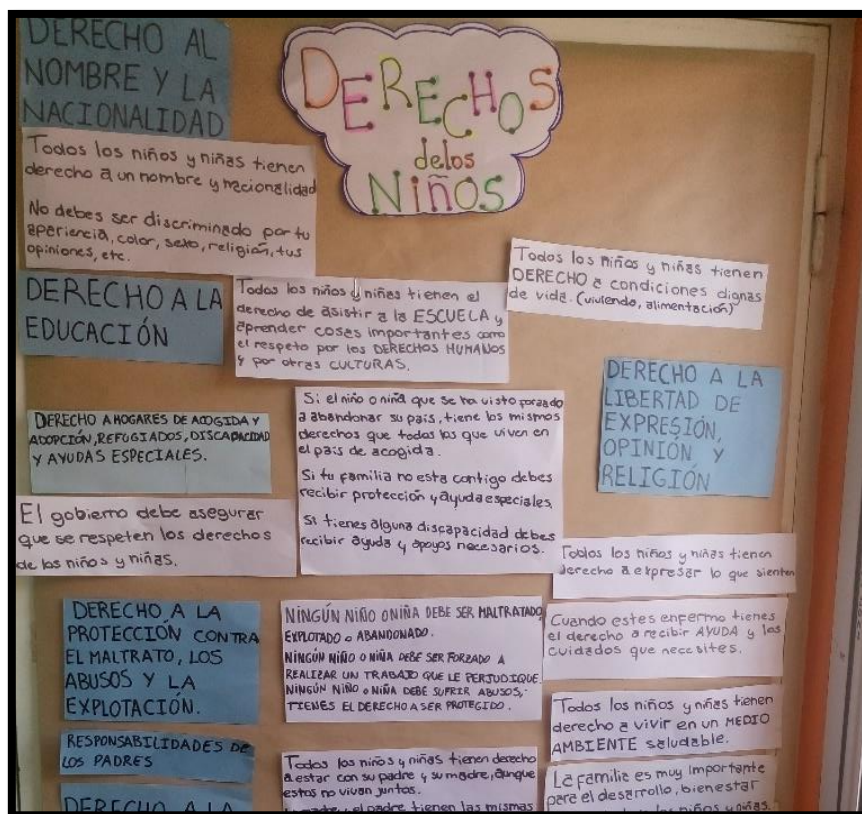 DERECHO AL
NOMBRE Y LA
NACIONALIDAD
DERECHOS
delos
NIÑOS
Todos los niños y niñas tienen
derecho a un nombre y nacionalidad
No debes ser discriminado por tu
apariencia, color, sexo, religión, tus
opiniones, etc.
Todos los niños y niñas tienen
DERECHO a condiciones dignas
de vida. (viviendo, alimentación)
DERECHO A LA
EDUCACIÓN
Todos los niños y niñas tienen el
derecho de asistir a la ESCUELA y
aprender cosas importantes como
el respeto por los DERECHOS HUMANOS
y por otras CULTURAS.
DERECHO A LA
LIBERTAD DE
EXPRESIÓN,
OPINIÓN Y
RELIGIÓN
DERECHO A HOGARES DE ACOGIDA Y
ADOPCIÓN, REFUGIADOS, DISCAPACIDAD
Y AYUDAS ESPECIALES.
Si el niño o niña que se ha visto forzado
a abandonar su país, tiene los mismos
derechos que todos los que viven en
el país de acogida.
Si tu familia no esta contigo debes
recibir protección y ayuda especiales.
Si tienes alguna discapacidad debes
recibir ayuda y apoyos necesarios.
El gobierno debe asegurar
que se respeten los derechos
de los niños y niñas.
Todos los niños y niñas tienen
derecho a expresar lo que sienten
DERECHO A LA
PROTECCIÓN CONTRA
EL MALTRATO, LOS
ABUSOS Y LA
EXPLOTACIÓN.
NINGÚN NIÑO O NIÑA DEBE SER MALTRATADO,
EXPLOTADO o ABANDONADO.
NINGÚN NIÑO o NIÑA DEBE SER FORZADO A
REALIZAR UN TRABAJO QUE LE PERJUDIQUE.
NINGÚN NIÑO o NIÑA DEBE SUFRIR ABUSOS,
TIENES EL DERECHO A SER PROTEGIDO.
Cuando estes enfermo tienes
el derecho a recibir AYUDA y los
cuidados que necesites.
Todos los niños y niñas tienen
derecho a vivir en un MEDIO
AMBIENTE saludable.
RESPONSABILIDADES DE
LOS PADRES
Todos los niños y niñas tienen derecho
a estar con su padre y su madre, aunque
estos no vivan juntos.
y el padre tienen las mismas
La familia es muy importante
para el desarrollo, bienestar
niños y niñas.
DERECHO A LA